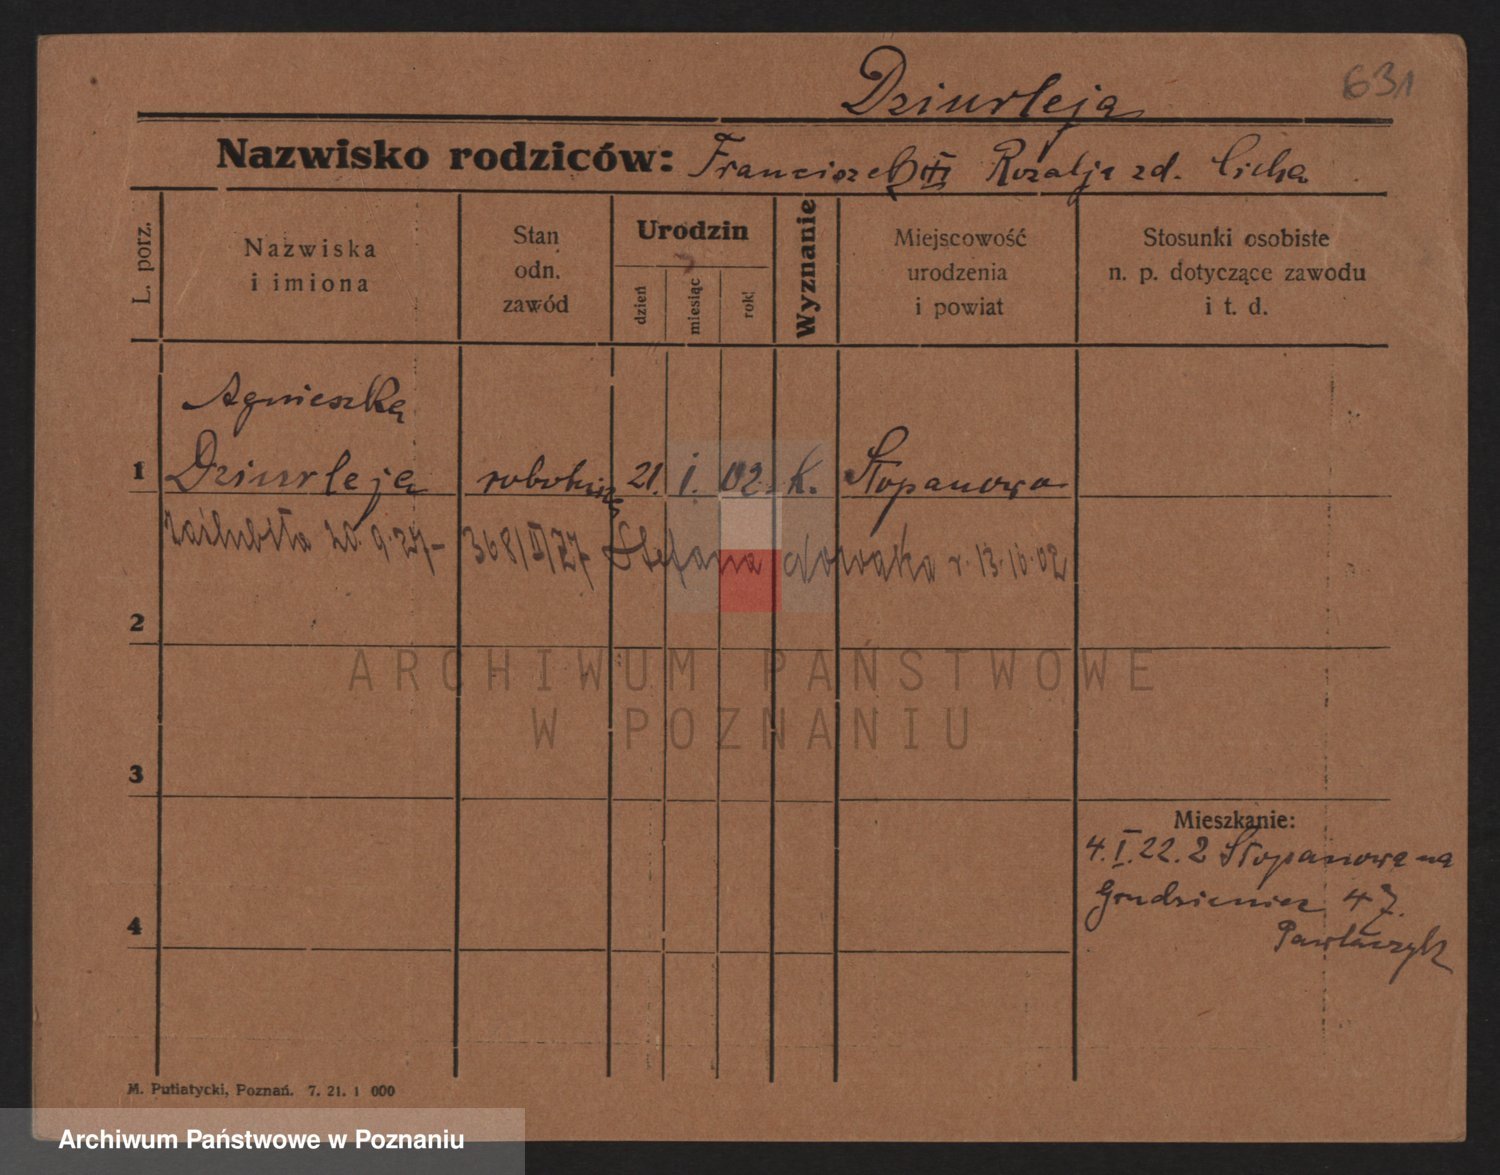 Dziurleja
631
Nazwisko rodziców: Franciszek Rozalja zd. Cicha
L. porz.
Nazwiska
i imiona
Stan
odn.
zawód
Urodzin
dzień
miesiąc
rok
Wyznanie
Miejscowość
urodzenia
i powiat
Stosunki osobiste
n. p. dotyczące zawodu
i t. d.
Agnieszka
1 Dziurleja robotnica 21. I. 02. k. Stopanowo
zaślubiła 20.9.27- 368/II/27 Stefana Nowaka r. 13.10.02
2
3
4
Mieszkanie:
4.I.22. z Stopanowa na
Grudzieniec 47.
Pawlaczyk
ARCHIWUM PAŃSTWOWE
W POZNANIU
M. Putiatycki, Poznań. 7. 21. 1 000
Archiwum Państwowe w Poznaniu